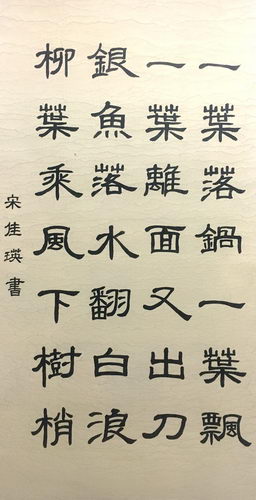 一葉落鍋一葉飄
一葉離面又出刀
銀魚落水翻白浪
柳葉乘風下樹梢
宋佳瑛書